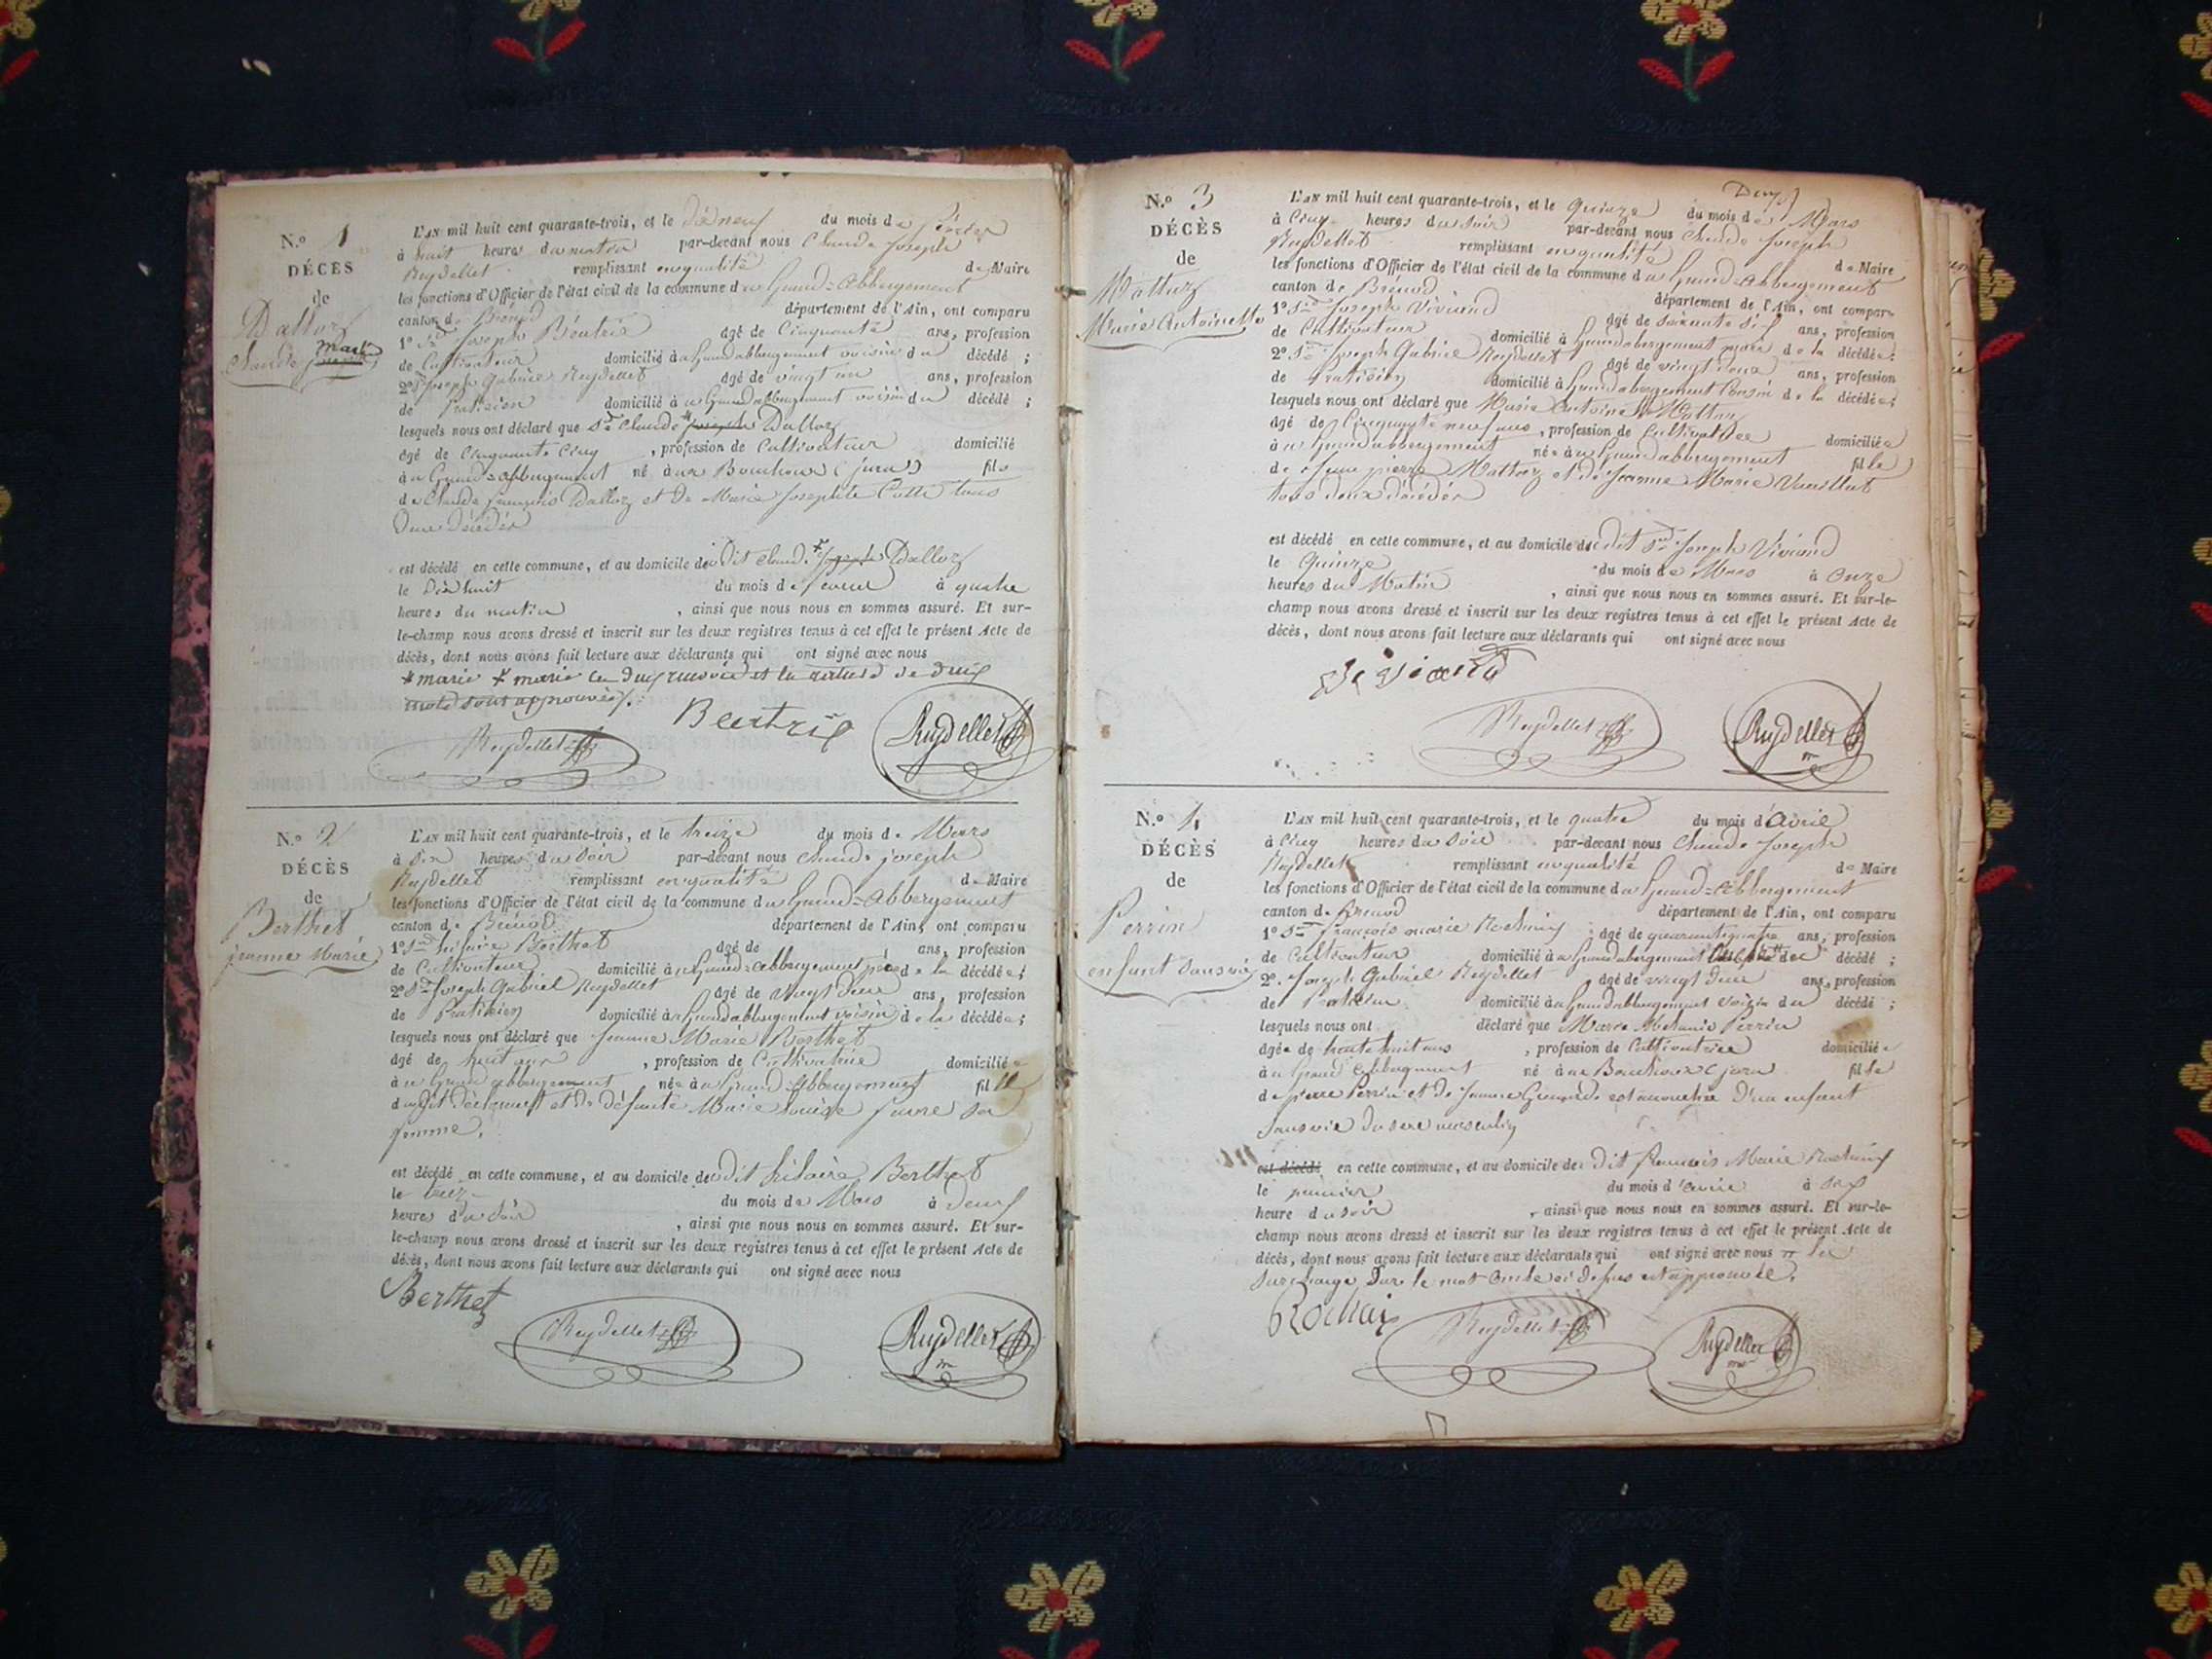 N.º 1
DÉCÈS
de
Dalloz
Claude Marie
L'AN mil huit cent quarante-trois, et le dix neuf du mois de
à huit heures du matin par-devant nous Claude Joseph
Reydellet remplissant en qualité de Maire
les fonctions d'Officier de l'état civil de la commune du Grand-Abbergement
canton de Brénod département de l'Ain, ont comparu
1º Sr Joseph Béatrix âgé de Cinquante ans, profession
de Cultivateur domicilié au Grand abbergement voisin du décédé ;
2º Sr Joseph Gabriel Reydellet âgé de vingt un ans, profession
de Praticien domicilié à au Grand abbergement voisin du décédé ;
lesquels nous ont déclaré que Sr Claude Joseph Dalloz
âgé de Cinquante Cinq , profession de Cultivateur domicilié
au Grand-abbergement né aux Bouchoux (jura) fils
de Claude françois Dalloz et de Marie Josephte tous
Deux décédés
est décédé en cette commune, et au domicile du Dit Claude Joseph Dalloz
le Dix huit du mois de à quatre
heures du matin , ainsi que nous nous en sommes assuré. Et sur-
le-champ nous avons dressé et inscrit sur les deux registres tenus à cet effet le présent Acte de
décès, dont nous avons fait lecture aux déclarants qui ont signé avec nous
* marie * marie Les Deux renvois et la rature de Deux
mots sont approuvés.
Reydellet Beatrix Reydellet
N.º 2
DÉCÈS
de
Berthet
jeanne Marie
L'AN mil huit cent quarante-trois, et le treize du mois de Mars
à six heures du soir par-devant nous Claude joseph
Reydellet remplissant en qualité de Maire
les fonctions d'Officier de l'état civil de la commune du Grand-Abbergement
canton de Brénod département de l'Ain, ont comparu
1º Sr hilaire Berthet âgé de ans, profession
de Cultivateur domicilié au Grand-abbergement père de la décédée ;
2º Sr Joseph Gabriel Reydellet âgé de vingt deux ans, profession
de Praticien domicilié au Grand abbergement voisin de la décédée ;
lesquels nous ont déclaré que Jeanne Marie Berthet
âgé de huit ans , profession de Cultivatrice domiciliée
au Grand abbergement née au Grand-Abbergement fille
du dit déclarant et de défunte Marie Louise favre sa
femme.
est décédé en cette commune, et au domicile du dit hilaire Berthet
le treize du mois de Mars à deux
heures du soir , ainsi que nous nous en sommes assuré. Et sur-
le-champ nous avons dressé et inscrit sur les deux registres tenus à cet effet le présent Acte de
décès, dont nous avons fait lecture aux déclarants qui ont signé avec nous
Berthet
Reydellet Reydellet
Deux
N.º 3
DÉCÈS
de
Mathez
Marie Antoinette
L'AN mil huit cent quarante-trois, et le Quinze du mois de Mars
à Cinq heures du soir par-devant nous Claude Joseph
Reydellet remplissant en qualité de Maire
les fonctions d'Officier de l'état civil de la commune du Grand-Abbergement
canton de Brénod département de l'Ain, ont comparu
1º Sr Joseph Viviand âgé de soixante six ans, profession
de Cultivateur domicilié à Grand abbergement mari de la décédée ;
2º Sr Joseph Gabriel Reydellet âgé de vingt deux ans, profession
de Praticien domicilié à Grand abbergement Cousin de la décédée ;
lesquels nous ont déclaré que Marie Antoinette
âgé de Cinquante neuf ans , profession de Cultivatrice domiciliée
au Grand abbergement née au Grand abbergement fille
de Jean pierre et de Jeanne Marie
tous deux décédés
est décédé en cette commune, et au domicile du dit Sr Joseph Viviand
le Quinze du mois de Mars à onze
heures du Matin , ainsi que nous nous en sommes assuré. Et sur-le-
champ nous avons dressé et inscrit sur les deux registres tenus à cet effet le présent Acte de
décès, dont nous avons fait lecture aux déclarants qui ont signé avec nous
Reydellet Reydellet
N.º 4
DÉCÈS
de
Perrin
enfant sans vie
L'AN mil huit cent quarante-trois, et le quatre du mois d'avril
à Cinq heures du soir par-devant nous Claude Joseph
Reydellet remplissant en qualité de Maire
les fonctions d'Officier de l'état civil de la commune du Grand-Abbergement
canton de Brénod département de l'Ain, ont comparu
1º Sr françois marie Rochaix âgé de quarante quatre ans, profession
de Cultivateur domicilié au Grand abbergement du décédé ;
2º Joseph Gabriel Reydellet âgé de vingt deux ans, profession
de Praticien domicilié au Grand abbergement voisin du décédé ;
lesquels nous ont déclaré que Marie Perrin
âgée de trente huit ans , profession de Cultivatrice domiciliée
au Grand Abbergement né aux Bouchoux (jura) fille
de pierre Perrin et de Jeanne est accouchée D'un enfant
sans vie du sexe masculin
est décédé en cette commune, et au domicile du Dit françois Marie Rochaix
le premier du mois d'avril à six
heure du soir , ainsi que nous nous en sommes assuré. Et sur-le-
champ nous avons dressé et inscrit sur les deux registres tenus à cet effet le présent Acte de
décès, dont nous avons fait lecture aux déclarants qui ont signé avec nous la
surcharge sur le mot ci dessus est approuvée.
Rochaix Reydellet Reydellet